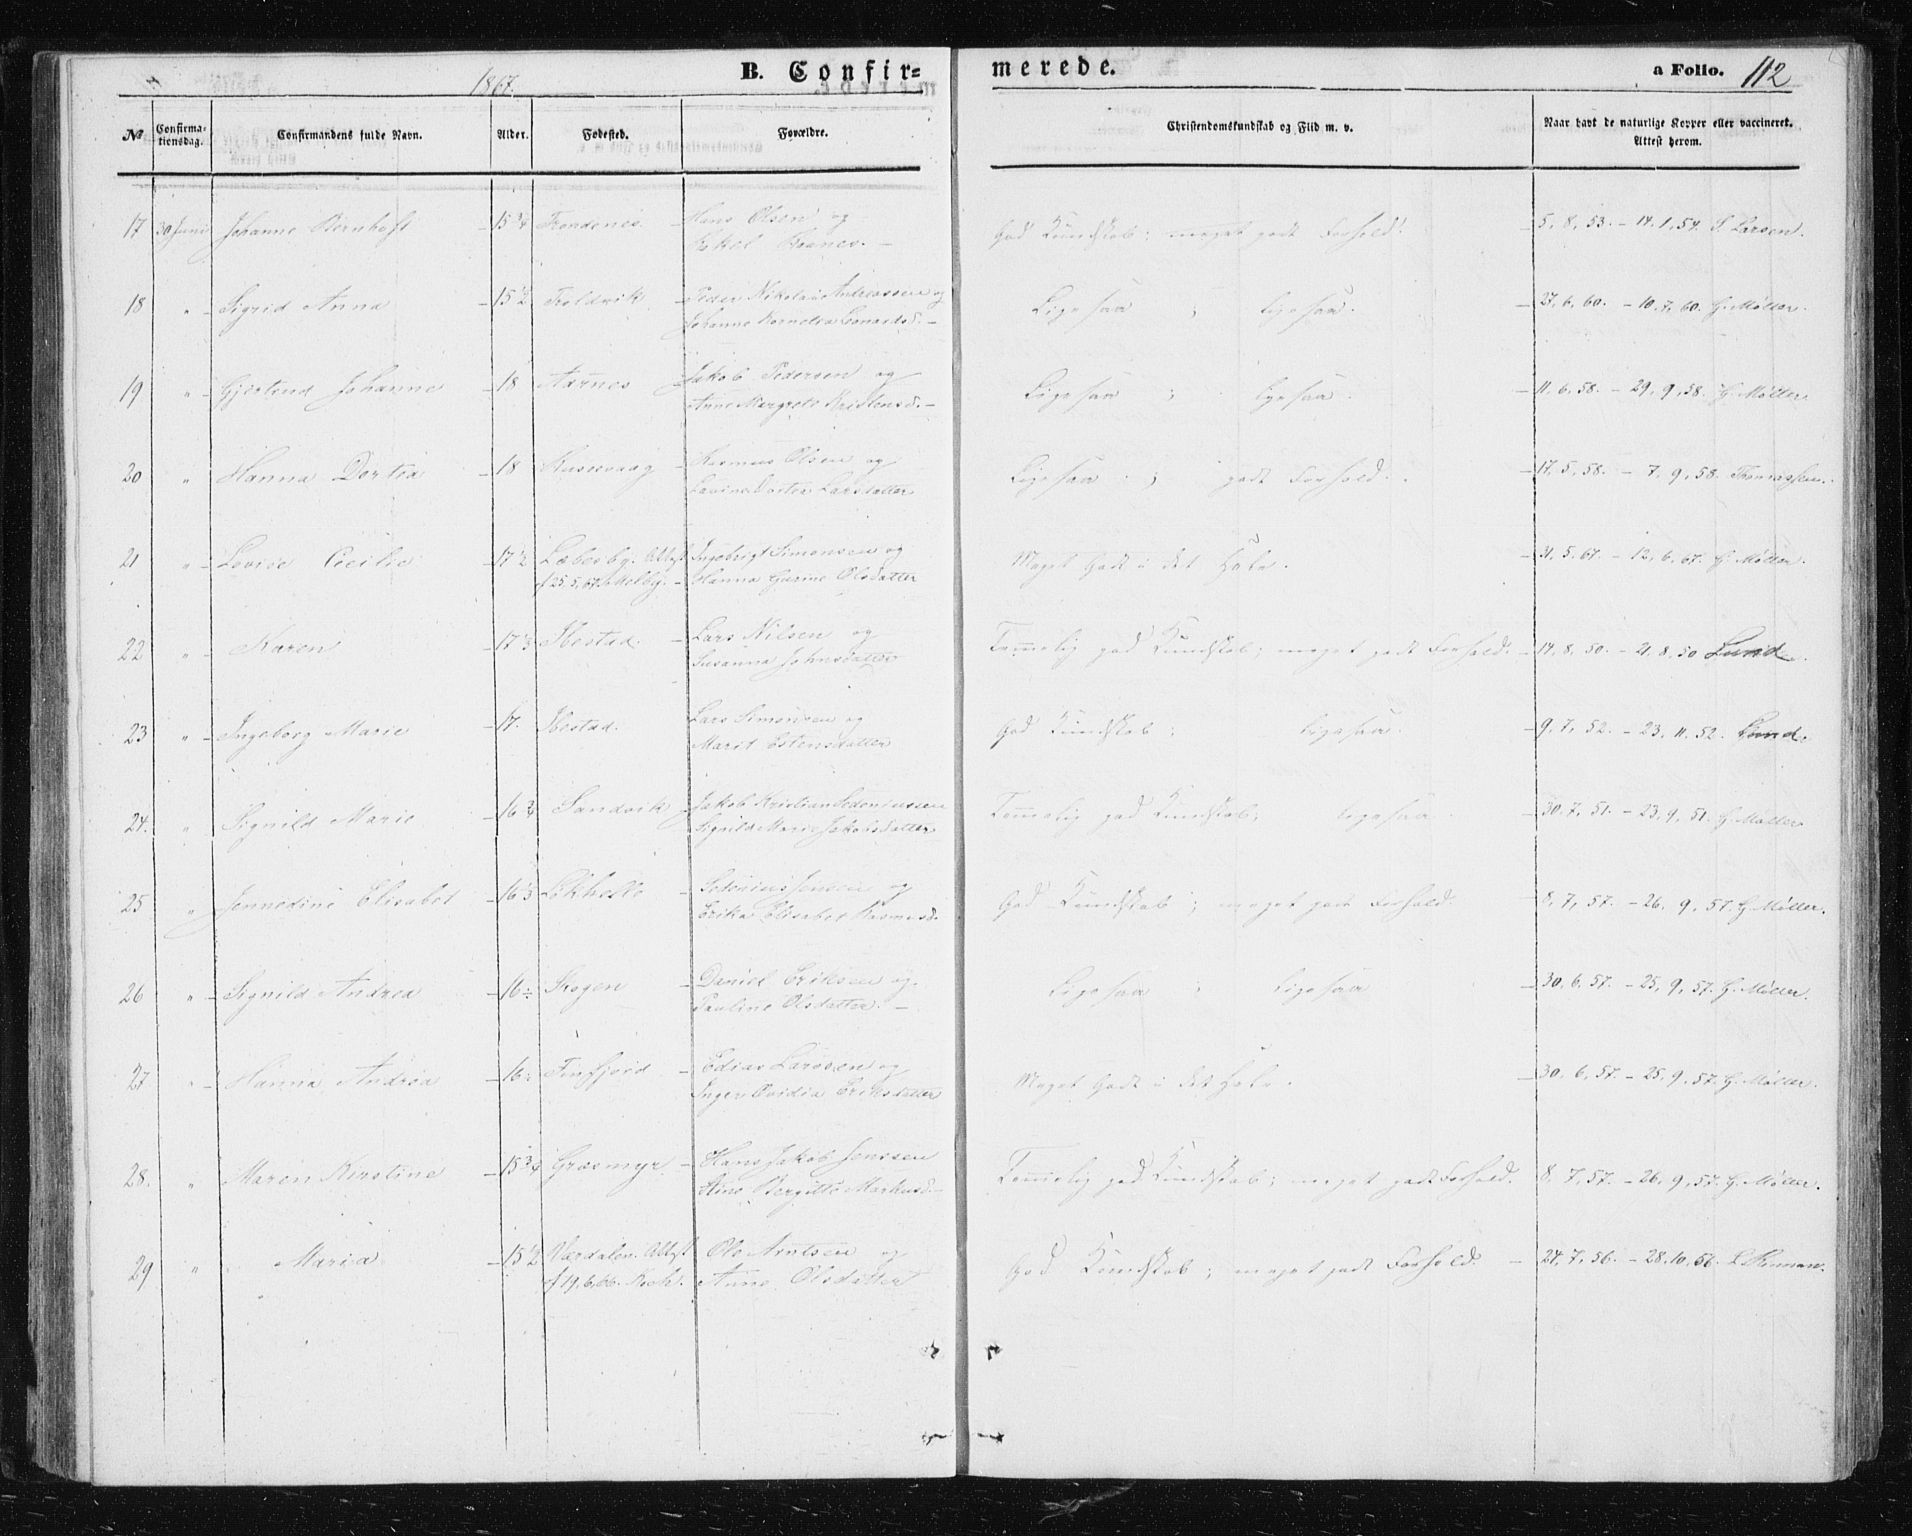 1867.
B. Confir= merede. a Folio. 112
№ Confirma-tionsdag. Confirmandens fulde Navn. Alder. Fødested. Forældre. Christendomskundskab og Flid m. v. Naar havt de naturlige Kopper eller vaccineret. Attest herom.
17 30 Juni Johanne Bernhoft 15 3/4 Trondenes. Hans Olsen og God Kundskab; meget godt Forhold. 5, 8, 53. - 14, 1, 54. S. Larsen.
Kranes.
18 " Sigrid Anna 15 1/2 Troldvik Peder Nikolai Andreassen og Ligesaa ; ligesaa. 27, 6, 60. - 10, 7, 60. H. Møller.
Johanne Kornelia Leonardsd.
19 " Gjertrud Johanne 18 Aarnes Jakob Pedersen og Ligesaa ; ligesaa. 11, 6, 58. - 29, 9, 58. H. Møller.
Anne Margrete Kristensd.
20 " Hanna Dortea 18 Rasmus Olsen og Ligesaa ; godt Forhold. 17, 5, 58. - 7, 9, 58. Thomassen.
Dortea Larsdatter
21 " Lovise Cecilie 17 1/2 Læbesby. Attest Ingebrigt Simonsen og Meget Godt i det Hele. 31, 5, 67. - 12, 6, 67. H. Møller.
f 25, 5, 67. Melby. Hanna Gurine Olsdatter
22 " Karen 17 1/3 Ibestad. Lars Nilsen og Temmelig god Kundskab; meget godt Forhold. 14, 8, 50. - 21, 8, 50 Lund.
Susanna Johnsdatter
23 " Ingeborg Marie 17. Ibestad. Lars Simonsen og God Kundskab; ligesaa. 9, 7, 52. - 23, 11, 52. Lund.
Marit Estensdatter
24. " Signild Marie 16 3/4 Sandvik Jakob Kristian Sedeniussen Temmelig god Kundskab; ligesaa. 30, 7, 51. - 23, 9, 51. H. Møller
Signild Marie Jakobsdatter
25 " Jennedine Elisabet 16 1/3 Løkhelle Sedenius Jensen og God Kundskab; meget godt Forhold. 8, 7, 57. - 26, 9, 57. H. Møller.
Erika Elisabet Rasmusd.
26 " Signild Andrea 16 Skogen Daniel Eriksen og Ligesaa ; ligesaa 30, 6, 57. - 25, 9, 57. H. Møller.
Pauline Olsdatter.
27 " Hanna Andrea 16 Finfjord Edias Larssen og Meget Godt i det Hele. 30, 6, 57. - 25, 9, 57. H. Møller.
Inger Ovidia Eriksdatter
28. " Maren Kirstine 15 3/4 Græsmyr Hans Jakob Jenssen Temmelig god Kundskab; meget godt Forhold. 8, 7, 57. - 26, 9, 57. H. Møller.
Bergitte Markusd.
29 " Maria 15 1/2 Værdalen. Attest Ole Arntsen og God Kundskab; meget godt Forhold. 24, 7, 56. - 28, 10, 56.
f 19, 6, 66. Koch. Anne Olsdatter